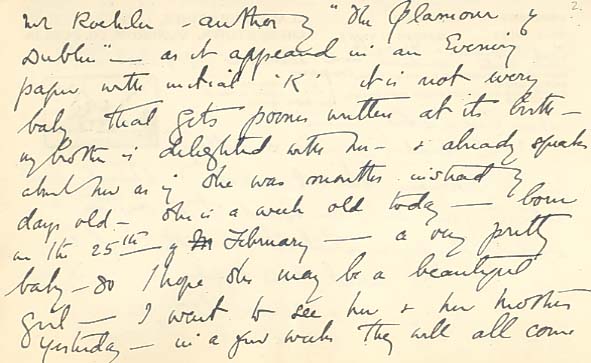 2.
Mr Koehler - author of "The Glamour of
Dublin" - as it appeared in an Evening
paper with initial 'K' it is not every
baby that gets poems written at its birth -
my brother is delighted with her - & already speaks
about her as if she was months instead of
days old - she is a week old today - born
on the 25th of February - a very pretty
baby - so I hope she may be a beautiful
girl - I went to see her & her mother
yesterday - in a few weeks they will all come